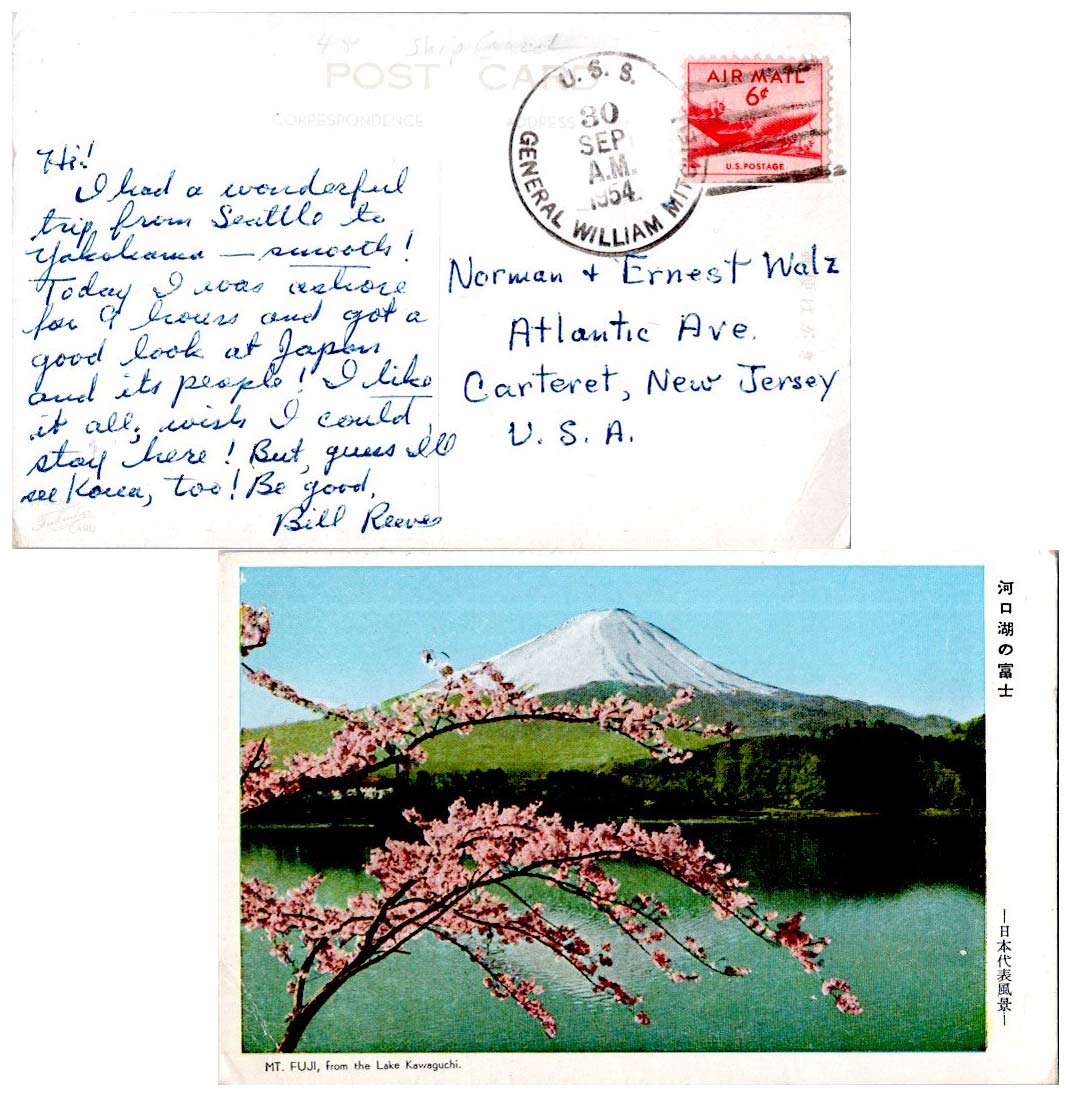 POST CARD
CORRESPONDENCE ADDRESS
U.S.S.
GENERAL WILLIAM MITCHELL
30
SEP
A.M.
1954
AIR MAIL
6¢
U.S. POSTAGE
Hi!
I had a wonderful
trip from Seattle to
Yokohama — smooth!
Today I was ashore
for 9 hours and got a
good look at Japan
and its people! I like
it all, wish I could
stay here! But, guess I'll
see Korea, too! Be good,
Bill Reeves
Norman + Ernest Walz
Atlantic Ave.
Carteret, New Jersey
U. S. A.
CARD
河口湖の富士
—日本代表風景—
MT. FUJI, from the Lake Kawaguchi.